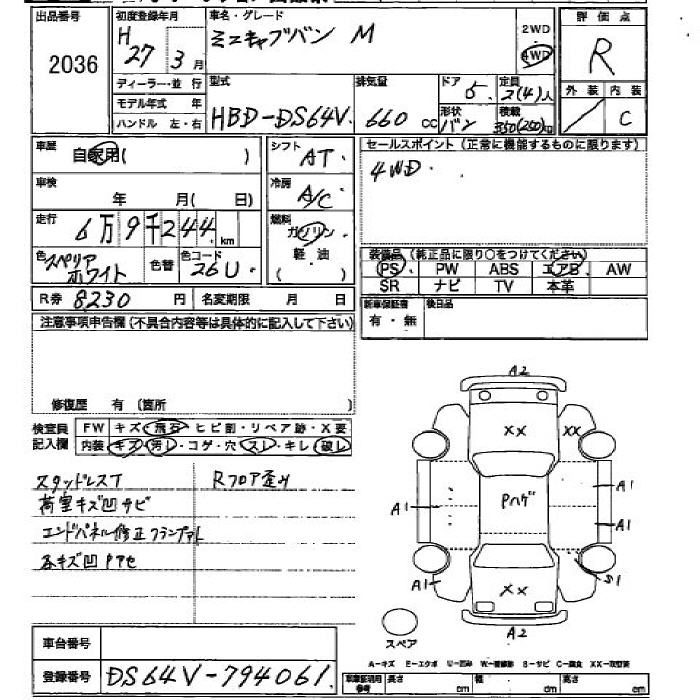 出品番号 初度登録年月 車名・グレード 評価点
2036 H 27 年 3 月 ミニキャブバン M 2WD 4WD R
ディーラー・並行 型式 排気量 ドア 定員 外装 内装
モデル年式 年 HBD-DS64V 660 cc 5 2(4)人 C
ハンドル 左・右 形状 バン 積載 350(250)kg
車歴 自家用( ) シフト AT セールスポイント(正常に機能するものに限ります)
車検 年 月( 日) 冷房 A/C 4WD
走行 6万9千244 km 燃料 ガソリン・
色 スペリアホワイト 色替 色コード 26U 軽・油 ( ) 装備品(純正品に限り○をつけてください)
PS PW ABS エアB AW
SR ナビ TV 本革
R券 8230 円 名変期限 月 日 新車保証書 後日品
有・無
注意事項申告欄(不具合内容等は具体的に記入して下さい)
修復歴 有(箇所 )
検査員 FW キズ・飛石・ヒビ割・リペア跡・X要
記入欄 内装 キズ・汚れ・コゲ・穴・スレ・キレ・破れ
スタッドレスT Rフロア歪み
荷室キズ凹サビ
エンドパネル修正フランプアト
各キズ凹Pアセ
A2
XX XX
A1 Pハゲ A1
A1
A1 XX S1
A2
スペア
A-キズ E-エクボ U-凹み W-補修跡 S-サビ C-腐食 XX-交換済
車台番号
登録番号 DS64V-794061
車庫証明用参考 長さ cm 幅 cm 高さ cm